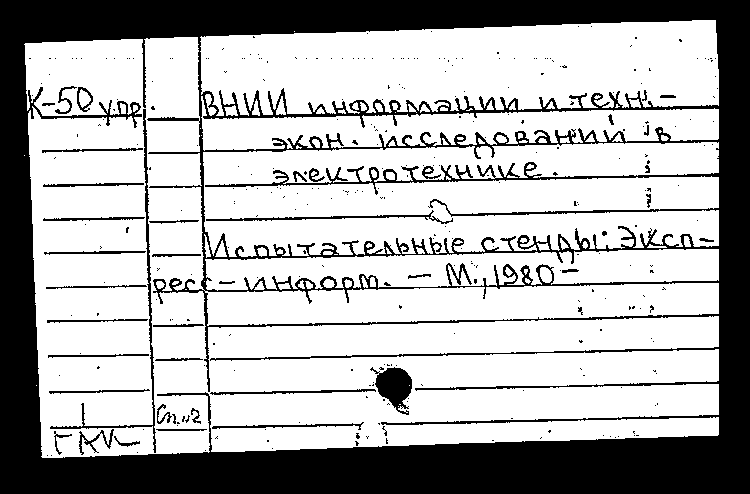 К-50 упр. ВНИИ информации и техн.-
экон. исследований в
электротехнике.
Испытательные стенды: Эксп-
ресс-информ. — М., 1980-